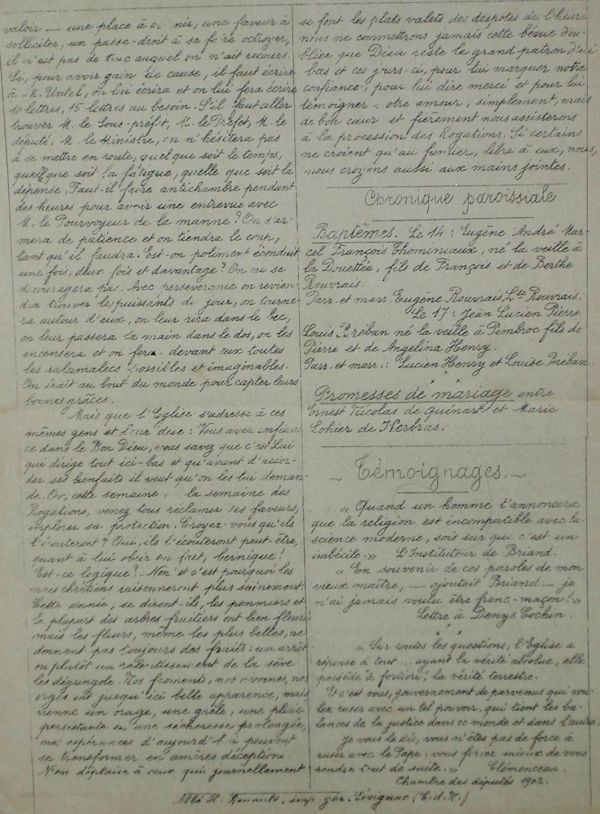 valoir — une place à obtenir, une faveur à
solliciter, un passe-droit à se faire octroyer,
il n'est pas de truc auquel on n'ait recours.
Si, pour avoir gain de cause, il faut écrire
à M. Untel, on lui écrira et on lui fera écrire
10 lettres, 15 lettres au besoin. S'il faut aller
trouver M. le Sous-préfet, M. le Préfet, M. le
député, M. le Ministre, on n'hésitera pas
à se mettre en route, quel que soit le temps,
quelque soit la fatigue, quelle que soit la
dépense. Faut-il faire antichambre pendant
des heures pour avoir une entrevue avec
M. le Pourvoyeur de la manne? On s'ar-
mera de patience et on tiendra le coup,
tant qu'il faudra. Est-on poliment éconduit
une fois, deux fois et davantage? On ne se
découragera pas. Avec persévérance on revien-
dra trouver les puissants du jour, on tourne-
ra autour d'eux, on leur rira dans le bec,
on leur passera la main dans le dos, on les
encensera et on fera devant eux toutes
les salamalecs possibles et imaginables.
On irait au bout du monde pour capter leurs
bonnes grâces.
Mais que l'Eglise s'adresse à ces
mêmes gens et leur dise: Vous avez confian-
ce dans le Bon Dieu, vous savez que c'est Lui
qui dirige tout ici-bas et qu'avant d'accor-
der ses bienfaits il veut qu'on les lui deman-
de. Or, cette semaine, la semaine des
Rogations, venez tous réclamer ses faveurs,
implorer sa protection. Croyez-vous qu'ils
l'écouteront? Oui, ils l'écouteront peut-être,
quant à lui obéir en fait, bernique!
Est-ce logique? Non et c'est pourquoi les
vrais chrétiens raisonneront plus sainement.
Cette année, se diront-ils, les pommiers et
la plupart des arbres fruitiers ont bien fleuri
mais les fleurs, même les plus belles, ne
donnent pas toujours des fruits: un arrêt
ou plutôt un ralentissement de la sève
les dégringole. Nos froments, nos avoines, nos
orges ont jusqu'ici belle apparence, mais
vienne un orage, une grêle, une pluie
persistante ou une sécheresse prolongée,
nos espérances d'aujourd'hui peuvent
se transformer en amères déceptions.
N'en déplaise à ceux qui journellement
se font les plats valets des despotes de l'heure
nous ne commettrons jamais cette bévue d'ou-
blier que Dieu reste le grand patron d'ici
bas et ces jours-ci, pour lui marquer notre
confiance, pour lui dire merci et pour lui
témoigner notre amour, simplement, mais
de bon cœur et fièrement nous assisterons
à la procession des Rogations. Si certains
ne croient qu'au fumier, libre à eux, nous,
nous croyons aussi aux mains jointes.
Chronique paroissiale
Baptêmes. Le 14: Eugène André Mar-
cel François Thominiaux, né la veille à
la Druettée, fils de François et de Berthe
Rouvrais.
Parr. et marr. Eugène Rouvrais, Rouvrais.
Le 17: Jean Lucien Pierre
Louis Bréban né la veille à Pembroc fils de
Pierre et de Angelina Henry.
Parr. et marr.: Lucien Henry et Louise Bréban.
Promesses de mariage entre
Ernest Nicolas de Guinart et Marie
Lohier de Herbras.
~ Témoignages. ~
« Quand un homme t'annoncera
que la religion est incompatible avec la
science moderne, sois sûr que c'est un
imbécile » L'Instituteur de Briand.
« En souvenir de ces paroles de mon
vieux maître, — ajoutait Briand — je
n'ai jamais voulu être franc-maçon! »
Lettre à Denys Cochin.
« Sur toutes les questions, l'Eglise a
réponse à tout... ayant la vérité absolue, elle
possède à fortiori, la vérité terrestre.
Et c'est vous, gouvernement de parvenus qui vou-
lez ruser avec un tel pouvoir, qui tient les ba-
lances de la justice dans ce monde et dans l'autre.
Je vous le dis, vous n'êtes pas de force à
ruser avec le Pape. Vous feriez mieux de vous
rendre tout de suite. » Clémenceau.
Chambre des députés 1902.
Abbé H. imp. gér. Sévignac (C.d.N.)